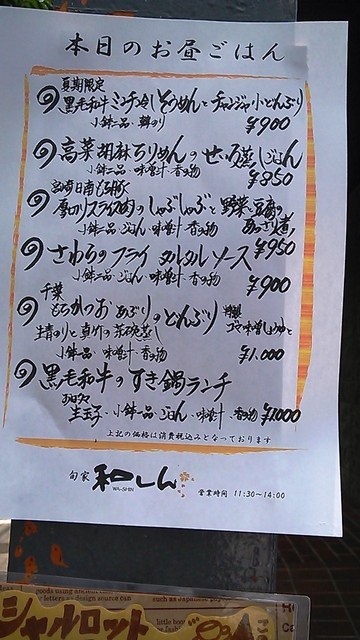 本日のお昼ごはん
夏期限定
黒毛和牛ミンチと冷しそうめんとチャンジャ小どんぶり
小鉢一品・韓のり
¥900
高菜胡麻ちりめんのせいろ蒸しごはん
小鉢二品・味噌汁・香の物
¥850
宮崎日南もち豚
厚切りスライス肉のしゃぶしゃぶと野菜と豆腐の
あっさり煮
小鉢一品・ごはん・味噌汁・香の物
¥950
さわらのフライ タルタルソース
小鉢二品・ごはん・味噌汁・香の物
¥900
千葉
もちかつおあぶりのどんぶり
特製
ゴマ味噌しょうゆと
生青のりと の茶碗蒸し
小鉢一品・味噌汁・香の物
¥1.000
黒毛和牛のすき鍋ランチ
生玉子・小鉢一品・ごはん・味噌汁・香の物
¥1000
上記の価格は消費税込みとなっております
旬家 和しん
WA-SHIN
営業時間 11:30〜14:00
goods using ancient
letters as design source can
such as Japanese
little
シャルロット